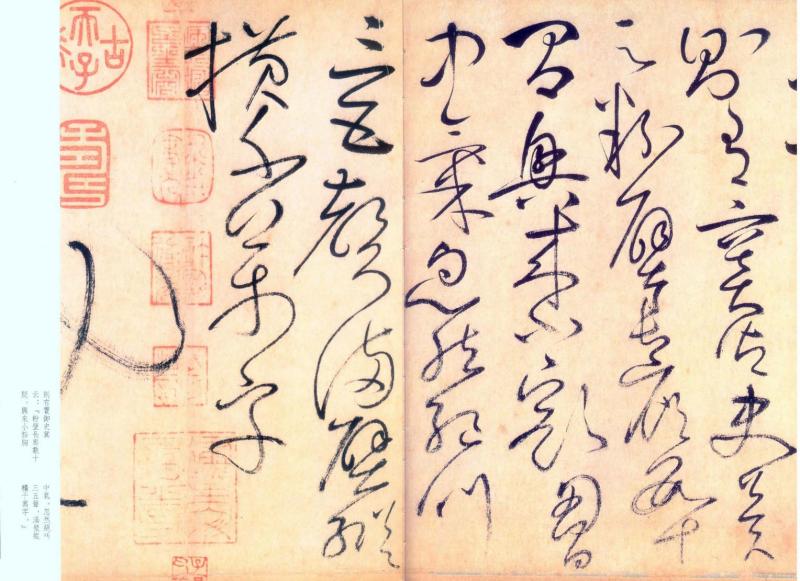 則有竇御史冀
云粉壁長廊數十
間興來小豁胸
中氣忽然絕叫
三五聲滿壁縱
橫千萬字
古希天子
壽
則有竇御史冀
云：『粉壁長廊數十
間，興來小豁胸
中氣。忽然絕叫
三五聲，滿壁縱
橫千萬字。』